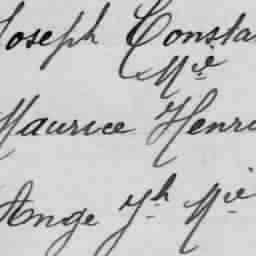 Joseph Consta
Mie
Maurice Henri
Ange Jh Mie